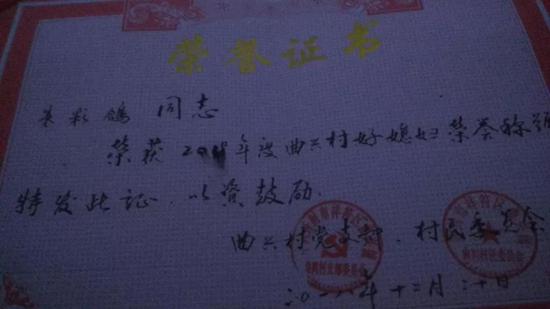 荣誉证书
彩鸽 同志
荣获 20 年度曲兴村好媳妇荣誉称号
特发此证,以资鼓励.
曲兴村党支部、村民委员会
二〇一八年十二月二十日